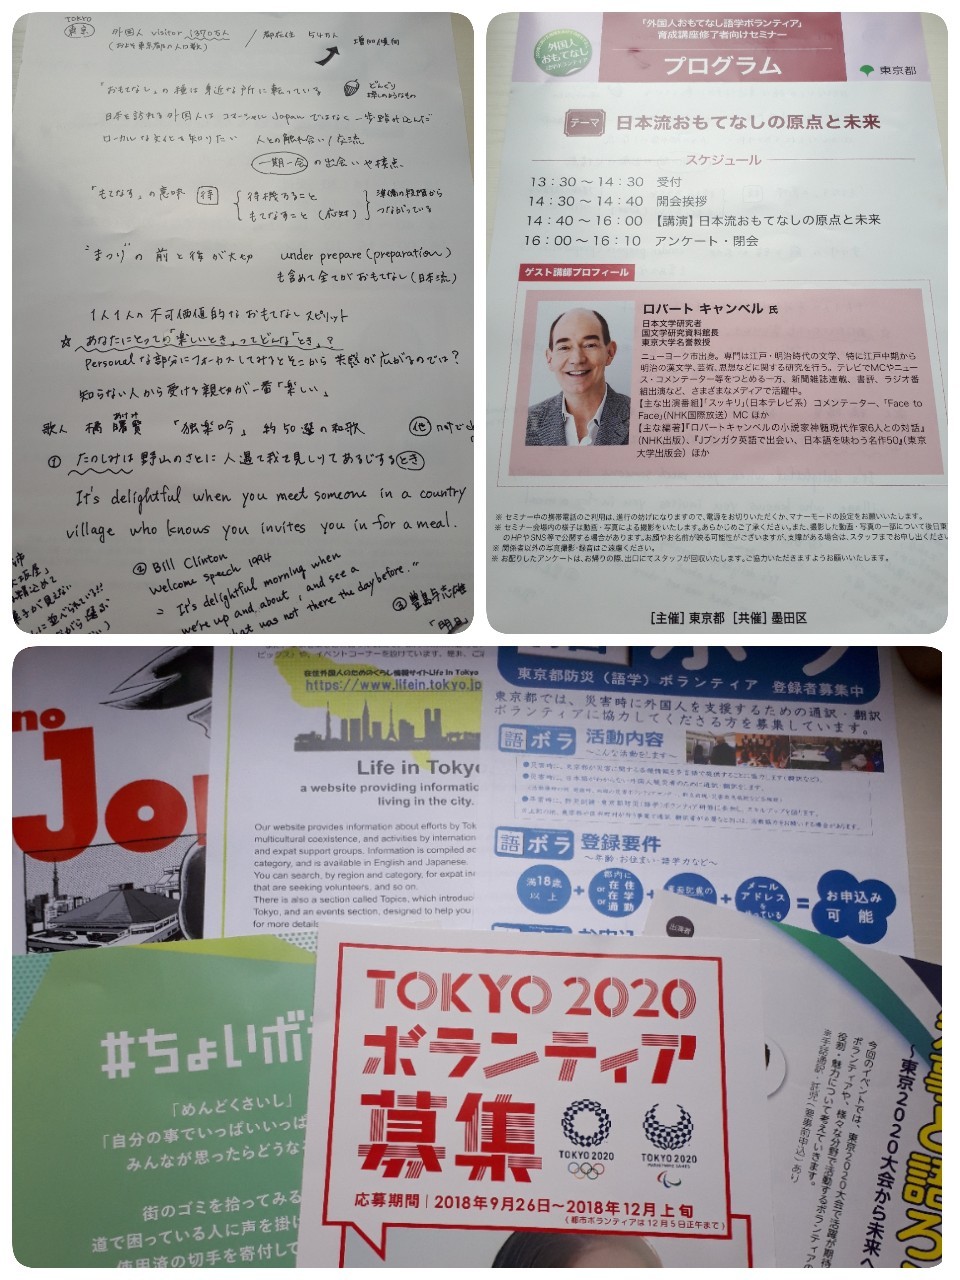 TOKYO
東京
外国人 visitor 1370万人
(およそ東京都の人口数)
/ 都在住 54万人
増加傾向
「おもてなし」の種は身近な所に転っている
どんぐり
日本を訪れる外国人は コマーシャル Japan ではなく 一歩踏み込んだ
ローカルな文化も知りたい 人との触れ合い/交流
一期一会 の出会いや接点
「もてなす」の意味 待
待機すること
もてなすこと (応対)
準備の段階から
つながっている
"まつり"の前と後が大切 under prepare (preparation)
も含めて全てがおもてなし(日本流)
1人1人の不可価値的なおもてなしスピリット
☆ あなたにとっての「楽しいとき」ってどんな「とき」?
Personalな部分にフォーカスしてみるとそこから共感が広がるのでは?
知らない人から受ける親切が一番「楽しい」
歌人 橘 曙覧 「独楽吟」 約50選の和歌
① たのしみは 野山のさとに 人遇て 我を見しりて あるじするとき
It's delightful when you meet someone in a country
village who knows you invites you in for a meal.
② Bill Clinton
welcome speech 1994
It's delightful morning when
we're up and about, and see a
that was not there the day before."
「外国人おもてなし語学ボランティア」
育成講座修了者向けセミナー
プログラム
外国人
おもてなし
語学ボランティア
東京都
テーマ 日本流おもてなしの原点と未来
スケジュール
13:30～14:30 受付
14:30～14:40 開会挨拶
14:40～16:00 【講演】日本流おもてなしの原点と未来
16:00～16:10 アンケート・閉会
ゲスト講師プロフィール
ロバート キャンベル 氏
日本文学研究者
国文学研究資料館長
東京大学名誉教授
ニューヨーク市出身。専門は江戸・明治時代の文学、特に江戸中期から
明治の漢文学、芸術、思想などに関する研究を行う。テレビでMCやニュー
ス・コメンテーター等をつとめる一方、新聞雑誌連載、書評、ラジオ番
組出演など、さまざまなメディアで活躍中。
【主な出演番組】「スッキリ」(日本テレビ系) コメンテーター、「Face to
Face」(NHK国際放送) MC ほか
【主な編著】『ロバートキャンベルの小説家神髄現代作家6人との対話』
(NHK出版)、『Jブンガク英語で出会い、日本語を味わう名作50』(東京
大学出版会) ほか
※ セミナー中の携帯電話のご利用は、進行の妨げになりますので、電源をお切りいただくか、マナーモードの設定をお願いいたします。
※ セミナー会場内の様子は動画・写真による撮影をいたします。あらかじめご了承ください。また、撮影した動画・写真の一部について後日東
のHPやSNS等で公開する場合があります。お顔やお名前が映る可能性がございますが、支障がある場合は、スタッフまでお申し出くださ
※ 関係者以外の写真撮影・録音はご遠慮ください。
※ お配りしたアンケートは、お帰りの際、出口にてスタッフが回収いたします。ご協力いただきますようお願いいたします。
[主催] 東京都 [共催] 墨田区
no
Jo
在住外国人のためのくらし情報サイトLife In Tokyo
https://www.lifein.tokyo.jp
Life in Tokyo
a website providing informatic
living in the city.
Our website provides information about efforts by Tok
multicultural coexistence, and activities by internation
and expat support groups. Information is compiled ac
category, and is available in English and Japanese.
You can search, by region and category, for expat in
that are seeking volunteers, and so on.
There is also a section called Topics, which introduc
Tokyo, and an events section, designed to help you
for more details
東京都防災(語学)ボランティア 登録者募集中
東京都では、災害時に外国人を支援するための通訳・翻訳
ボランティアに協力してくださる方を募集しています。
語ボラ 活動内容
～こんな活動をします～
語ボラ 登録要件
～年齢・お住まい・語学力など～
満18歳
以上
+
都内に
or 在住
or 在学
通勤
+
+
メール
アドレスを
持っている
=
お申込み
可能
出演者
#ちょいボ
「めんどくさいし」
「自分の事でいっぱいいっぱ
みんなが思ったらどうな
街のゴミを拾ってみる
道で困っている人に声を掛け
使用済の切手を寄付して
TOKYO 2020
ボランティア
募集
TOKYO 2020
TOKYO 2020
PARALYMPIC GAMES
応募期間｜2018年9月26日～2018年12月上旬
(都市ボランティアは12月5日正午まで)
今回のイベントでは、東京2020大会で活躍が期待
ボランティアや、様々な分野で活動するボランティアの
役割・魅力について考えていきます。
※手話通訳・託児(要事前申込)あり
～東京2020大会から未来へ